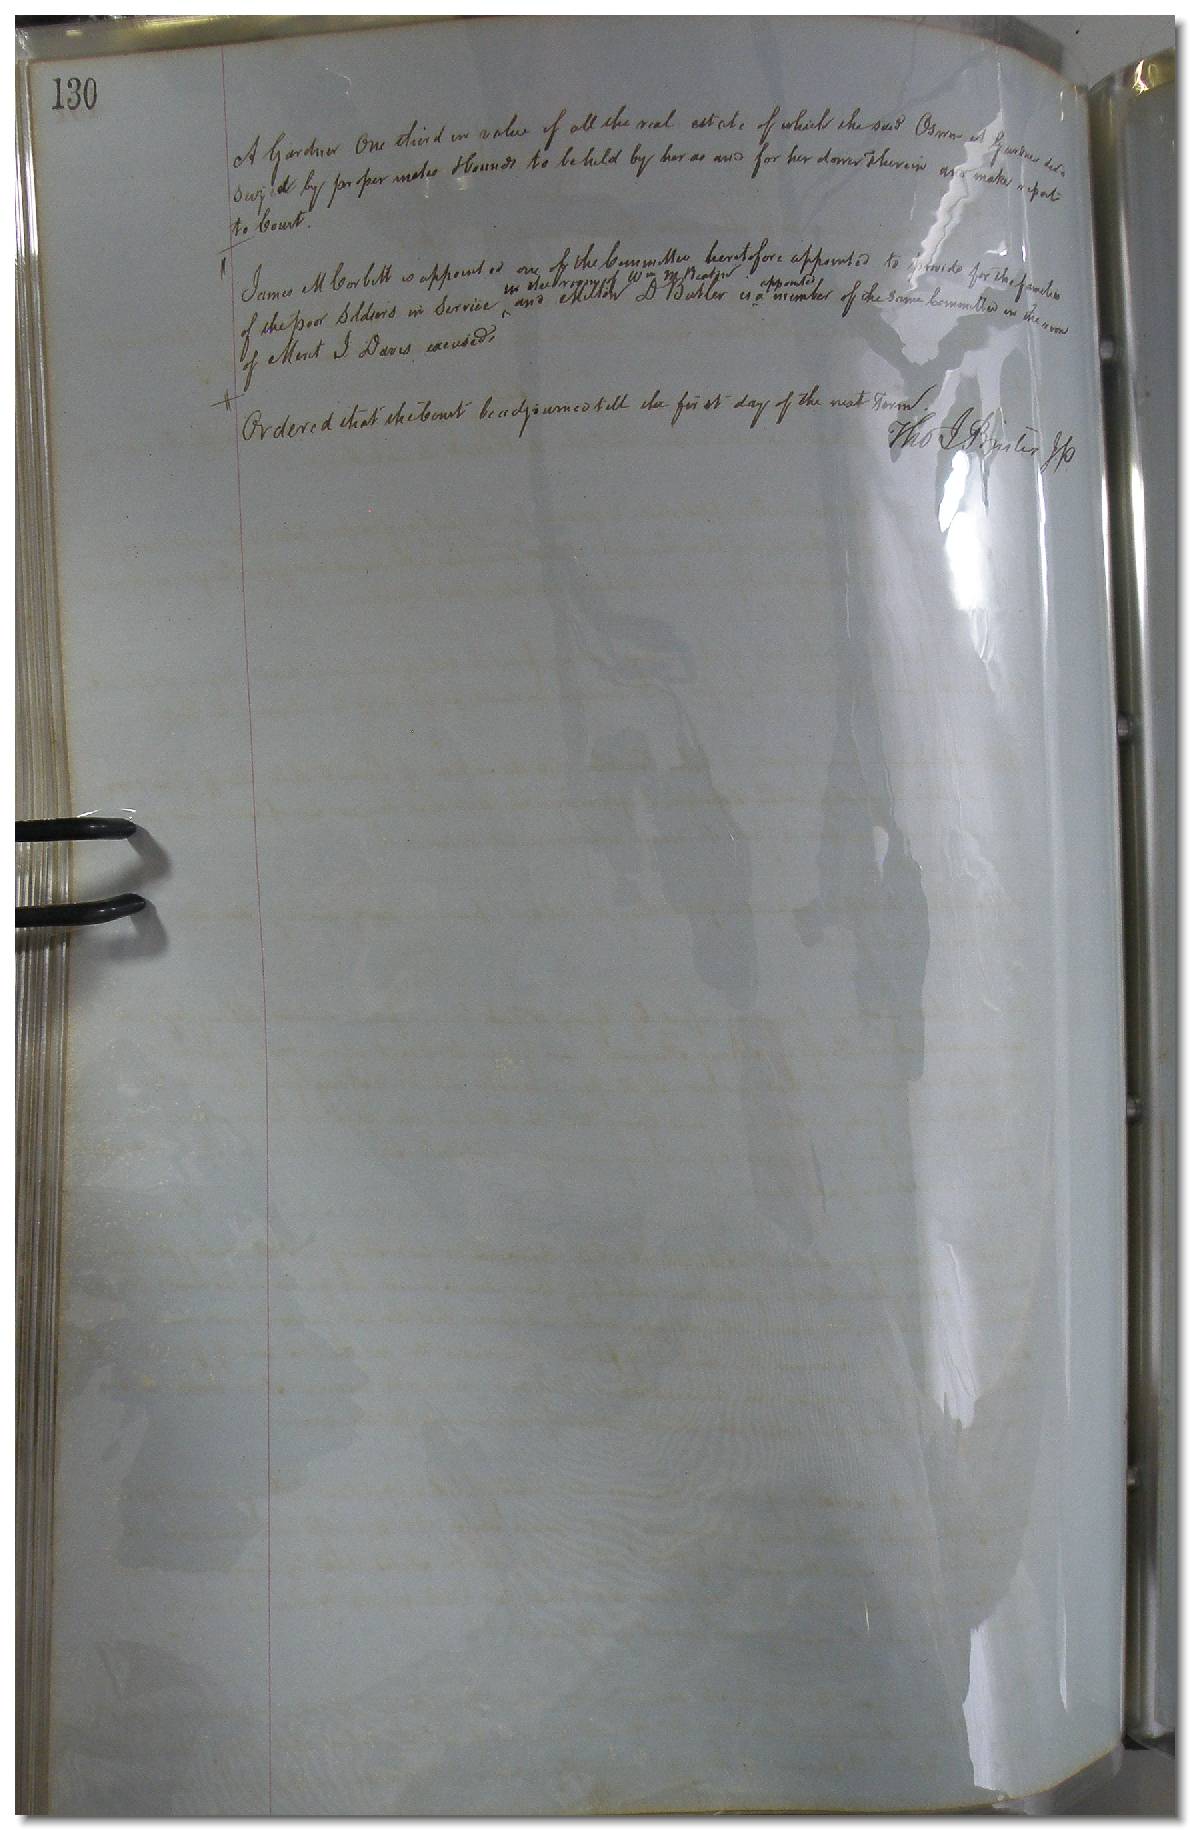 130
A Gardner One third in value of all the real estate of which the said Osmon A Gardner died
Seized by proper metes & bounds to be held by her as and for her dower therein and make report
to Court.
James M Corbitt is appointed one of the Committee heretofore appointed to provide for the families
in the room of Wm M appointed
of the poor Soldiers in Service and Milton D Butler is a member of the same Committee in the room
of Merit J Davis excused.
Ordered that the Court be adjourned till the first day of the next Term.
Tho J JP